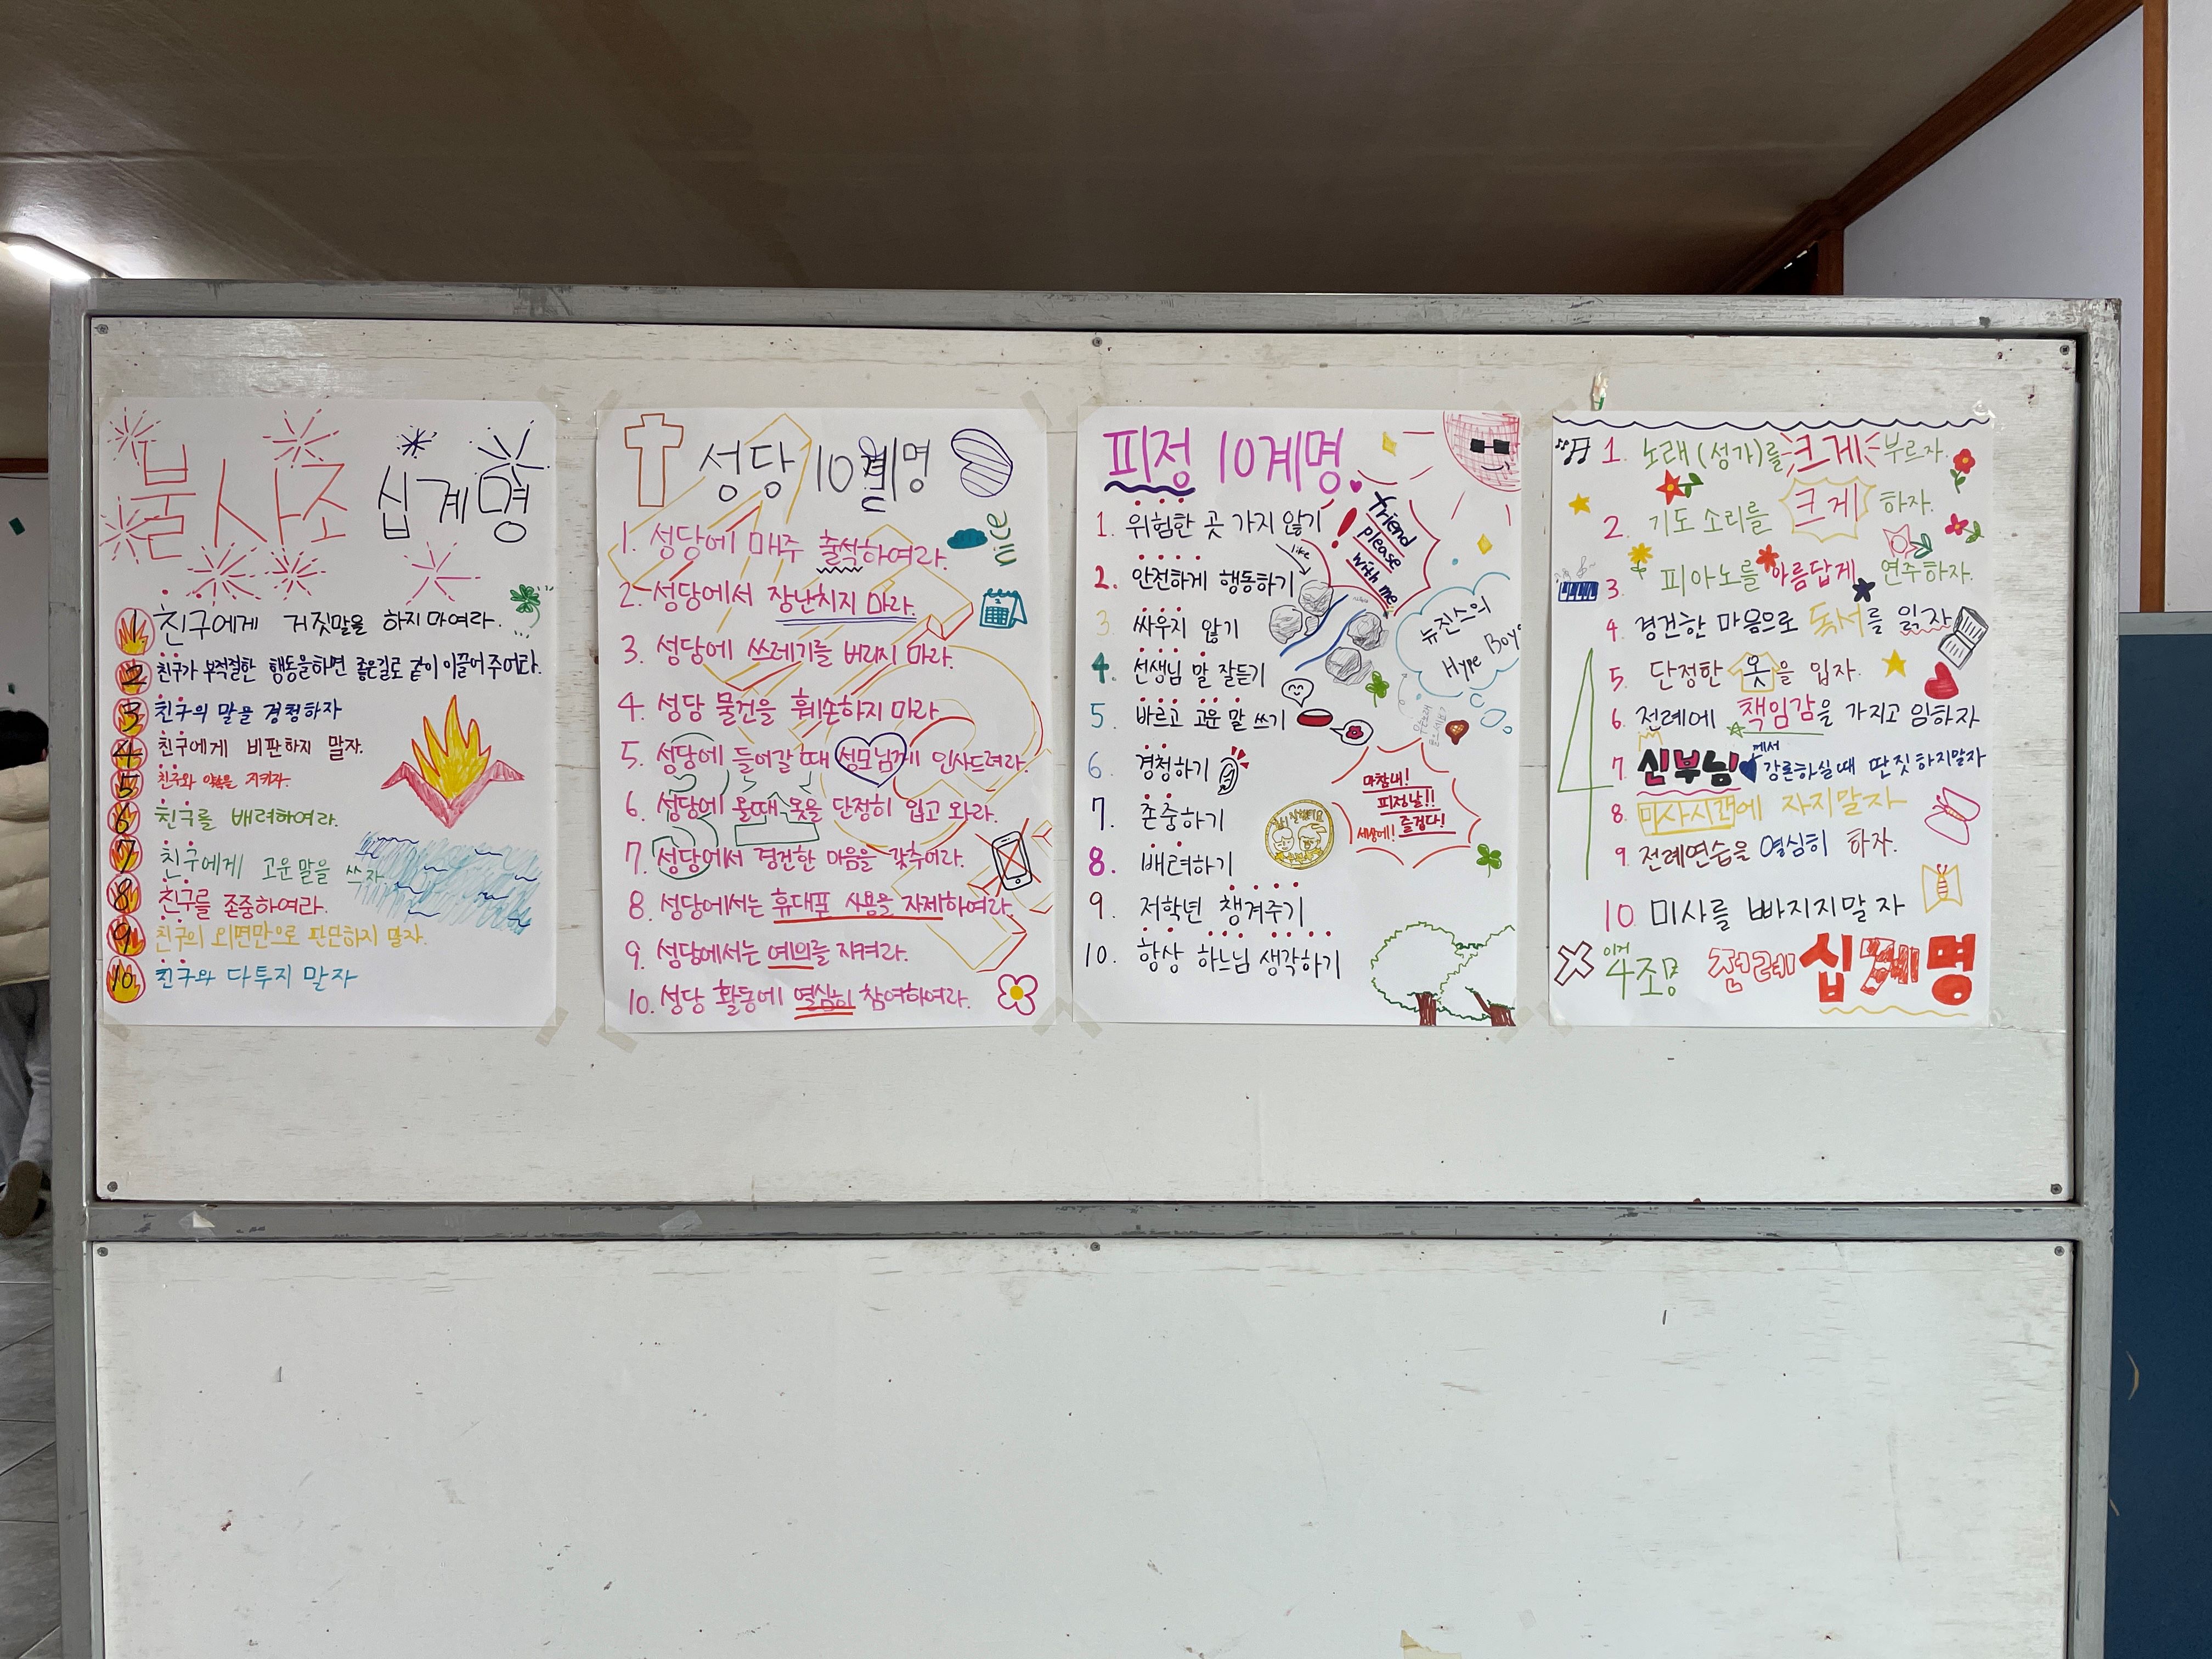 불사조 십계명
1 친구에게 거짓말을 하지마여라.
2 친구가 부적절한 행동을하면 좋은길로 같이 이끌어 주어라.
3 친구의 말을 경청하자
4 친구에게 비판하지 말자.
5 친구와 약속을 지키자.
6 친구를 배려하여라.
7 친구에게 고운말을 쓰자
8 친구를 존중하여라.
9 친구의 외면만으로 판단하지 말자.
10 친구와 다투지 말자
성당 10계명
nice
1. 성당에 매주 출석하여라.
2. 성당에서 장난치지 마라.
3. 성당에 쓰레기를 버리지 마라.
4. 성당 물건을 훼손하지 마라
5. 성당에 들어갈 때 성모님께 인사드려라.
6. 성당에 올때 옷을 단정히 입고 와라.
7. 성당에서 경건한 마음을 갖추어라.
8. 성당에서는 휴대폰 사용을 자제하여라.
9. 성당에서는 예의를 지켜라.
10. 성당 활동에 열심히 참여하여라.
피정 10계명
1. 위험한 곳 가지 않기
like
2. 안전하게 행동하기
3. 싸우지 않기
4. 선생님 말 잘듣기
5. 바르고 고운 말 쓰기
6. 경청하기
7. 존중하기
8. 배려하기
9. 저학년 챙겨주기
10. 항상 하느님 생각하기
friend
please
with me
뉴진스의
Hype Boy
마침내!
피정날!!
세상에! 즐겁다!
1. 노래(성가)를 크게 부르자.
2. 기도 소리를 크게 하자.
3. 피아노를 아름답게 연주하자.
4. 경건한 마음으로 독서를 읽자
5. 단정한 옷을 입자.
6. 전례에 책임감을 가지고 임하자
7. 신부님께서 강론하실때 딴짓하지말자
8. 미사시간에 자지말자
9. 전례연습을 열심히 하자.
10. 미사를 빠지지말자
4
이거
4조명 전례 십계명